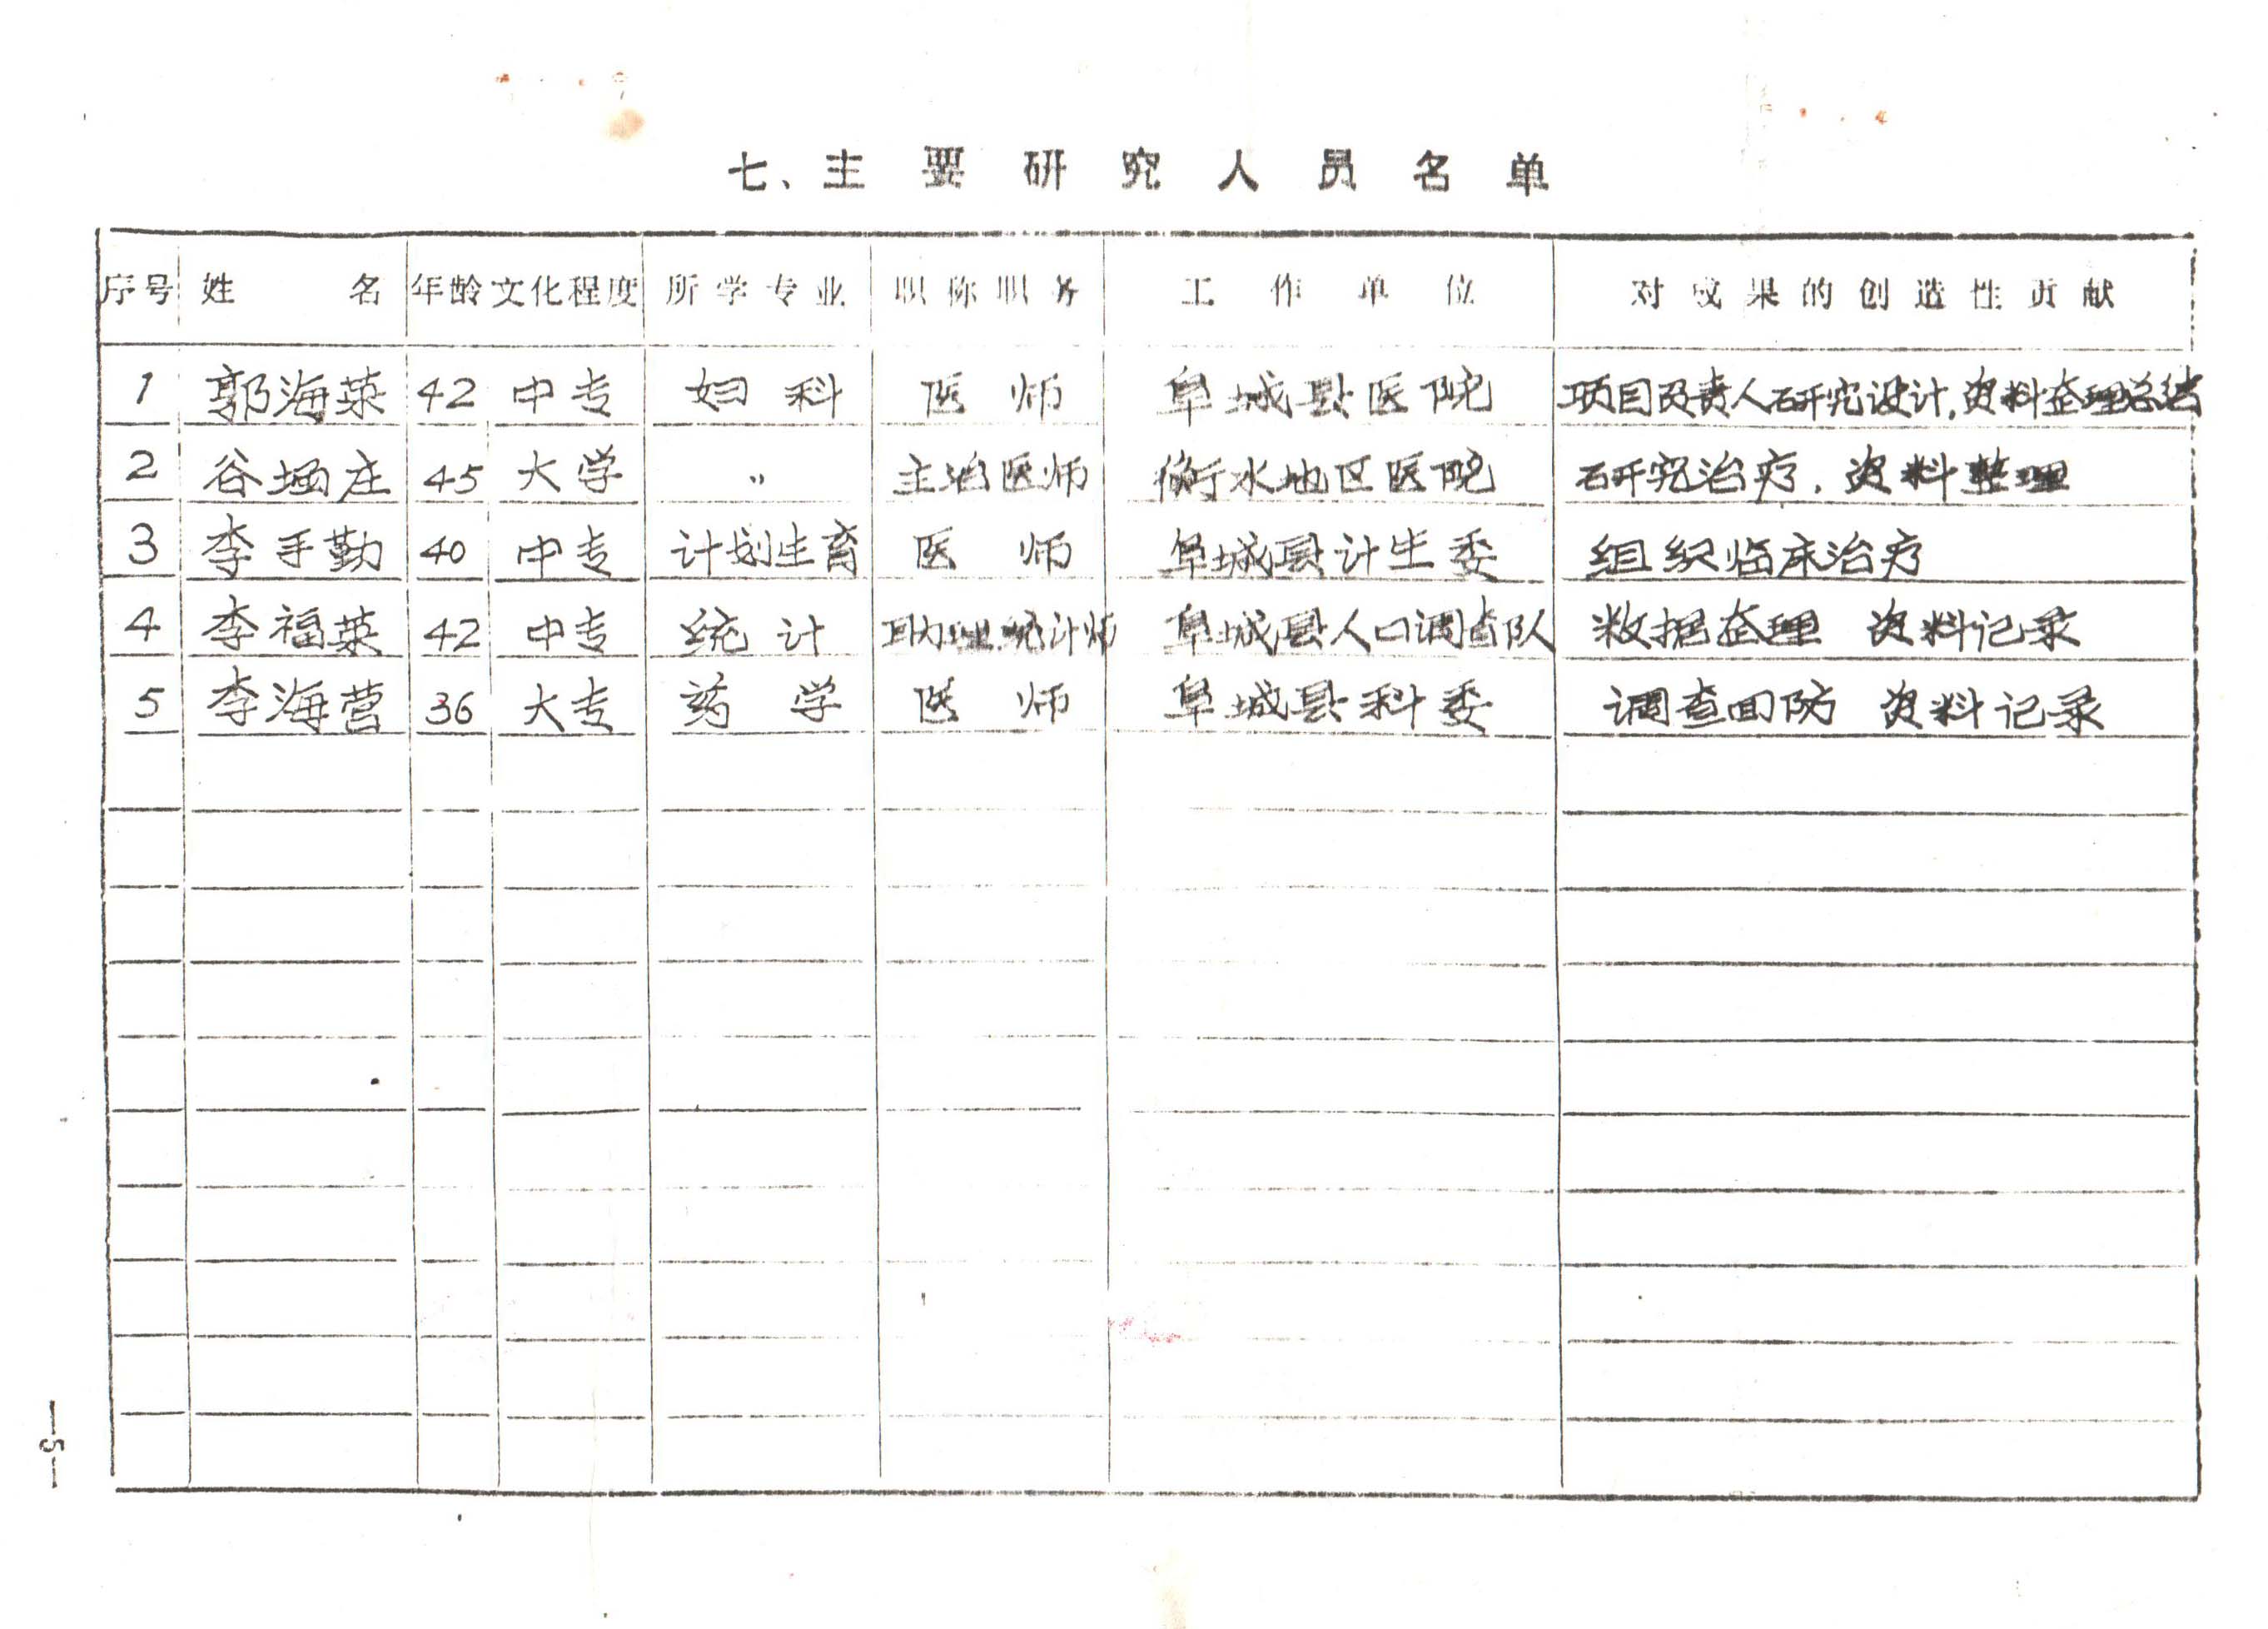 七、主要研究人员名单
序号 姓名 年龄 文化程度 所学专业 职称职务 工作单位 对成果的创造性贡献
1 郭海英 42 中专 妇科 医师 阜城县医院 项目负责人研究设计,资料整理总结
2 谷 庄 45 大学 〃 主治医师 衡水地区医院 研究治疗,资料整理
3 李手勤 40 中专 计划生育 医师 阜城县计生委 组织临床治疗
4 李福英 42 中专 统计 助理统计师 阜城县人口调查队 数据整理 资料记录
5 李海营 36 大专 药学 医师 阜城县科委 调查回防 资料记录
—5—